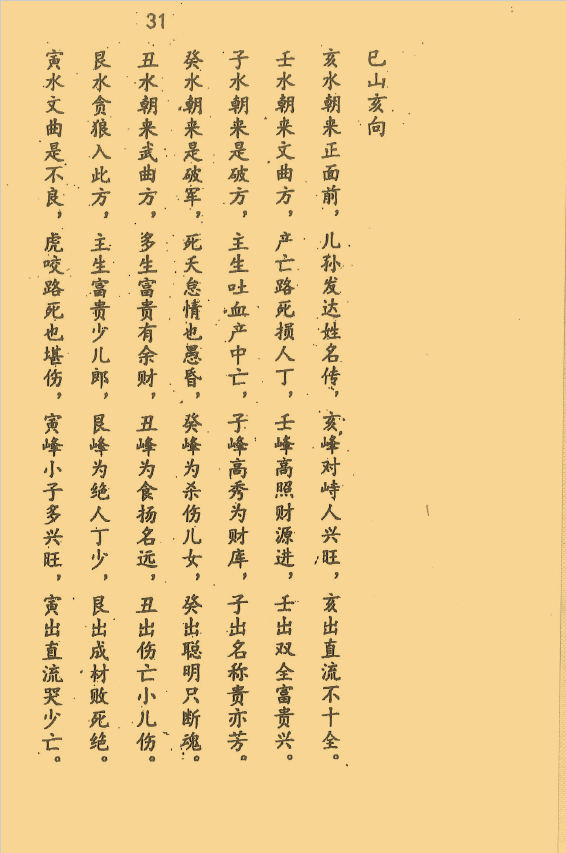 31
巳山亥向
亥水朝来正面前，儿孙发达姓名传，亥峰对峙人兴旺，亥出直流不十全。
壬水朝来文曲方，产亡路死损人丁，壬峰高照财源进，壬出双全富贵兴。
子水朝来是破方，主生吐血产中亡，子峰高秀为财库，子出名称贵亦芳。
癸水朝来是破军，死夭怠情也愚昏，癸峰为杀伤儿女，癸出聪明只断魂。
丑水朝来武曲方，多生富贵有余财，丑峰为食扬名远，丑出伤亡小儿伤。
艮水贪狼入此方，主生富贵少儿郎，艮峰为绝人丁少，艮出成材败死绝。
寅水文曲是不良，虎咬路死也堪伤，寅峰小子多兴旺，寅出直流哭少亡。